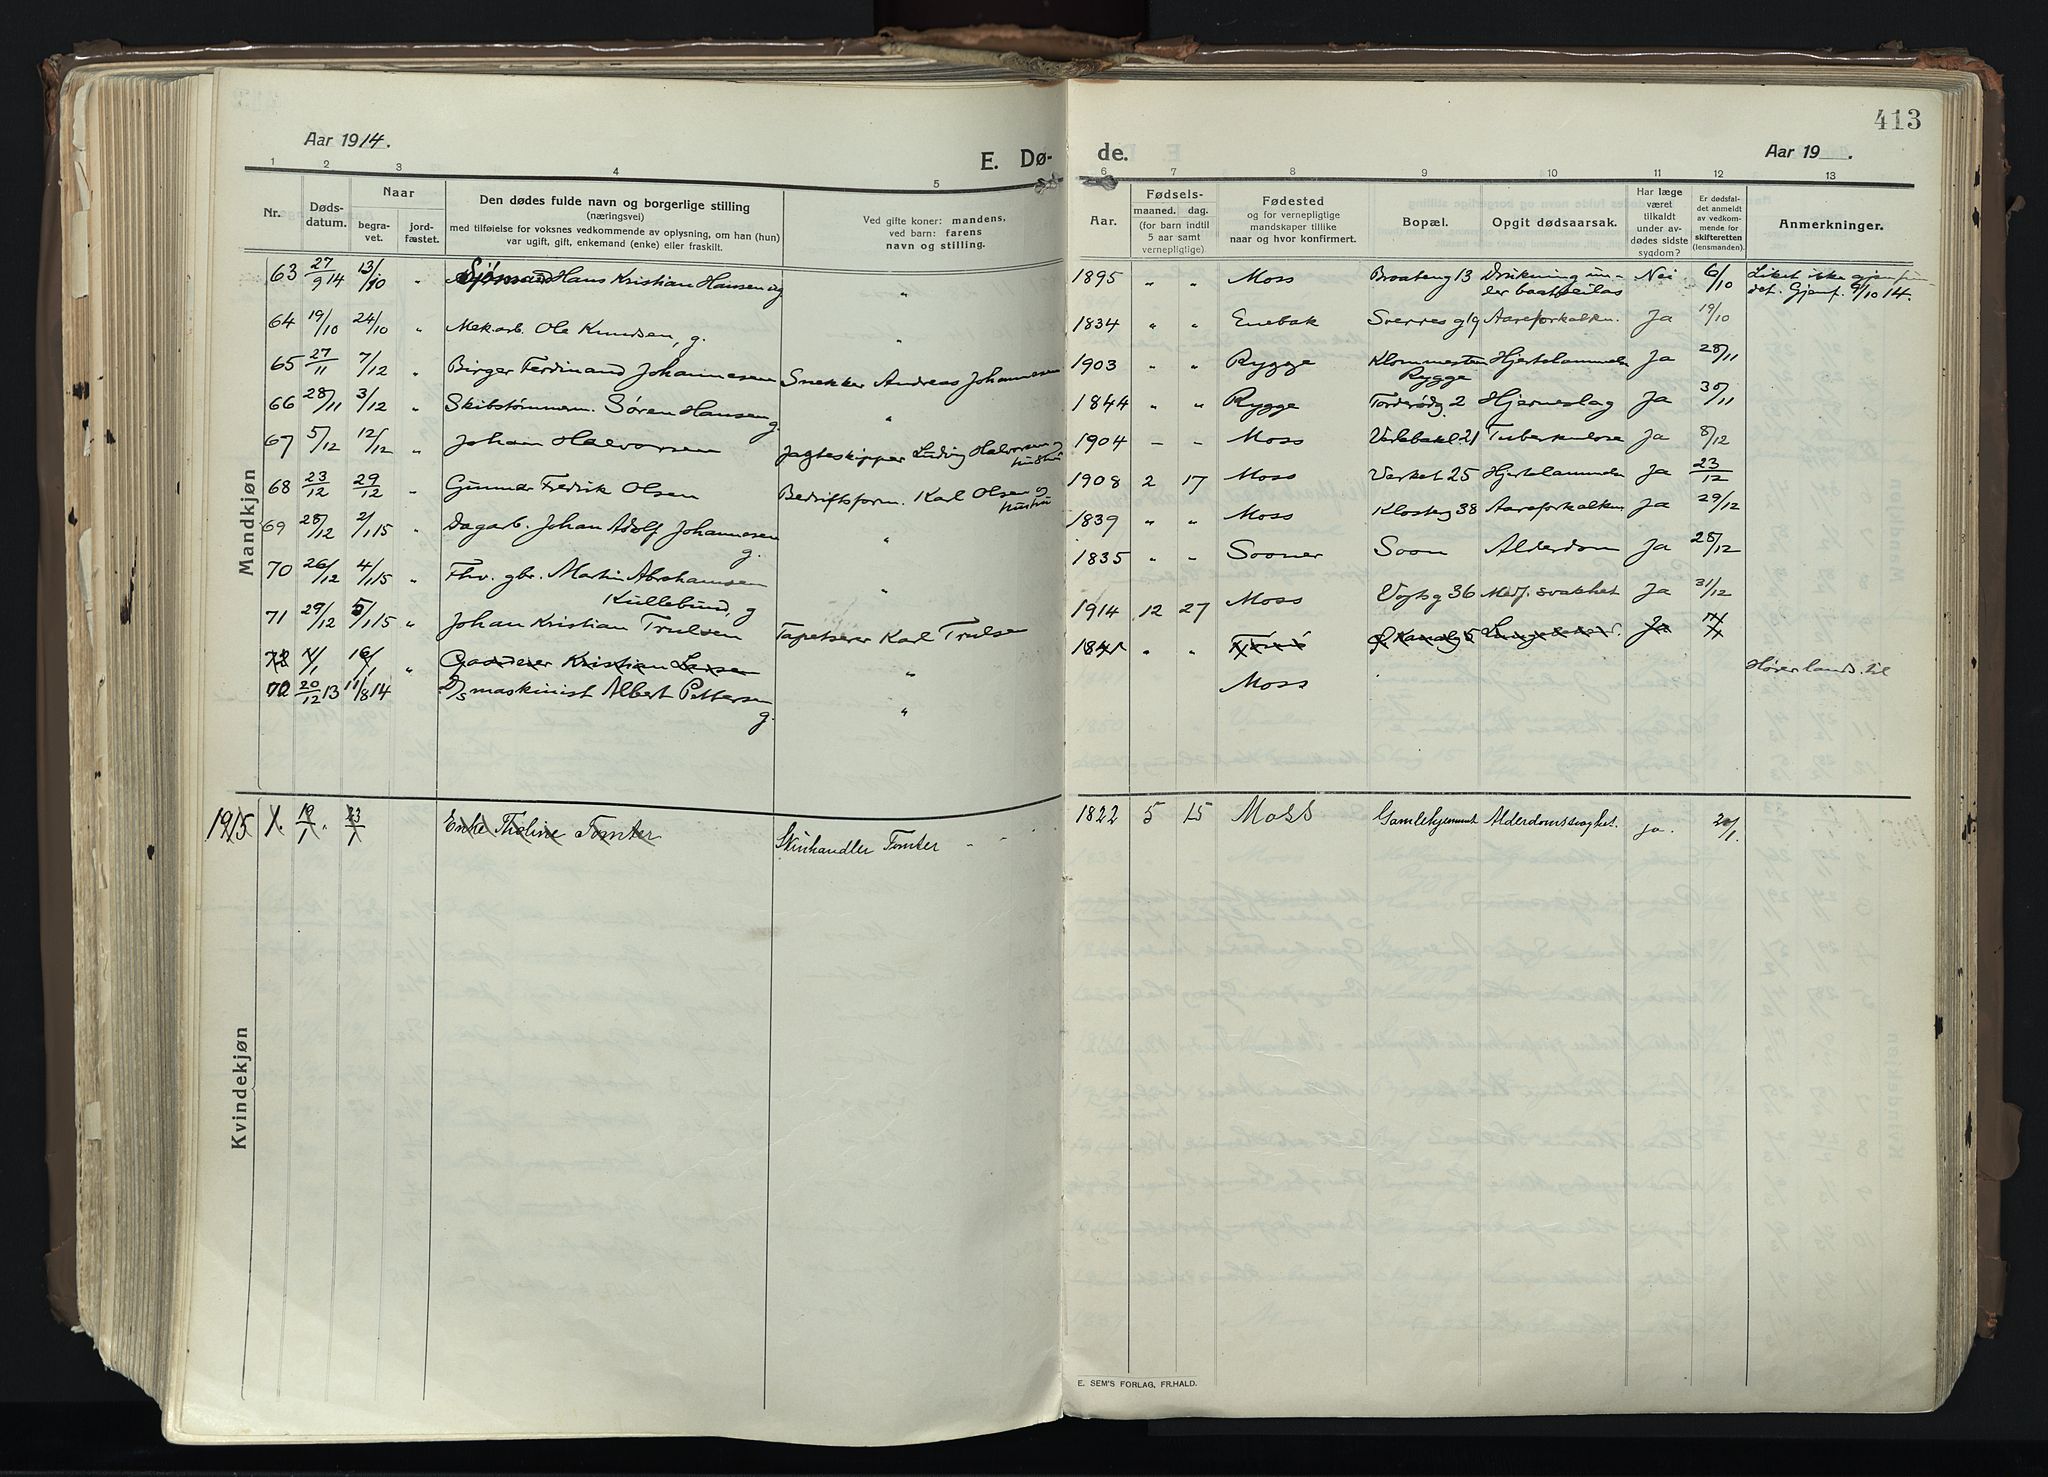 413
Aar 1914.
E. Dø-
de.
Aar 19 .
1 2 3 4 5 6 7 8 9 10 11 12 13
Nr.
Døds-
datum.
Naar
begra-
vet.
jord-
fæstet.
Den dødes fulde navn og borgerlige stilling
(næringsvei)
med tilføielse for voksnes vedkommende av oplysning, om han (hun)
var ugift, gift, enkemand (enke) eller fraskilt.
Ved gifte koner: mandens,
ved barn: farens
navn og stilling.
Aar.
Fødsels-
maaned. dag.
(for barn indtil
5 aar samt
vernepligtige)
Fødested
og for vernepligtige
mandskaper tillike
naar og hvor konfirmert.
Bopæl.
Opgit dødsaarsak.
Har læge
været
tilkaldt
under av-
dødes sidste
sygdom?
Er dødsfal-
det anmeldt
av vedkom-
mende for
skifteretten
(lensmanden).
Anmerkninger.
Mandkjøn
63 27/9 14 13/10 " Sjømand Hans Kristian Hansen ug " 1895 " " Moss Braateng 13 Drukning un- Nei 6/10 Liket ikke gjenfun-
der baatseilas det. Gjenf. 9/10 14.
64 19/10 24/10 " Mek.arb. Ole Knudsen, g. " 1834 " " Enebak Sverres g 19 Aareforkalkn. Ja 19/10
65 27/11 7/12 " Birger Ferdinand Johannesen Snekker Andreas Johannesen 1903 " " Rygge Klommesten Hjertelammelse Ja 28/11
Rygge
66 28/11 3/12 " Skibstømmerm. Søren Hansen " 1844 " " Rygge Torderødg. 2 Hjerneslag Ja 30/11
g.
67 5/12 12/12 " Johan Halvorsen Jagteskipper Ludvig Halvorsen og 1904 - - Moss Varlebakk. 21 Tuberkulose Ja 8/12
hustru
68 23/12 29/12 " Gunnar Fredrik Olsen Bedriftsform. Karl Olsen og 1908 2 17 Moss Værket 25 Hjertelammelse Ja 23/12
hustru
69 28/12 2/1 15 " Dagarb. Johan Adolf Johannesen " 1839 " " Moss Klosterg 38 Aareforkalkn Ja 29/12
g.
70 26/12 4/1 15 " Fhv. gbr. Martin Abrahamsen " 1835 " " Sooner Soon Alderdom Ja 28/12
Kullebund, g
71 29/12 5/1 15 " Johan Kristian Trulsen Tapetserer Karl Trulsen 1914 12 27 Moss Vogts g 36 Medf. svakhet Ja 31/12
72 16/1 " Kristian Larsen " 1841 " " Kanalg 5 Ja
72 20/12 13 11/8 14 D/s maskinist Albert Pettersen " Moss Hører lands. til
g.
Kvindekjøn
1915 1. 19/1 23/1 Enke Thaline Tomter Skinhandler Tomter " " 1822 5 15 Moss Gamlehjemmet Alderdomssvaghet. ja. 20/1.
E. SEM'S FORLAG, FR.HALD.